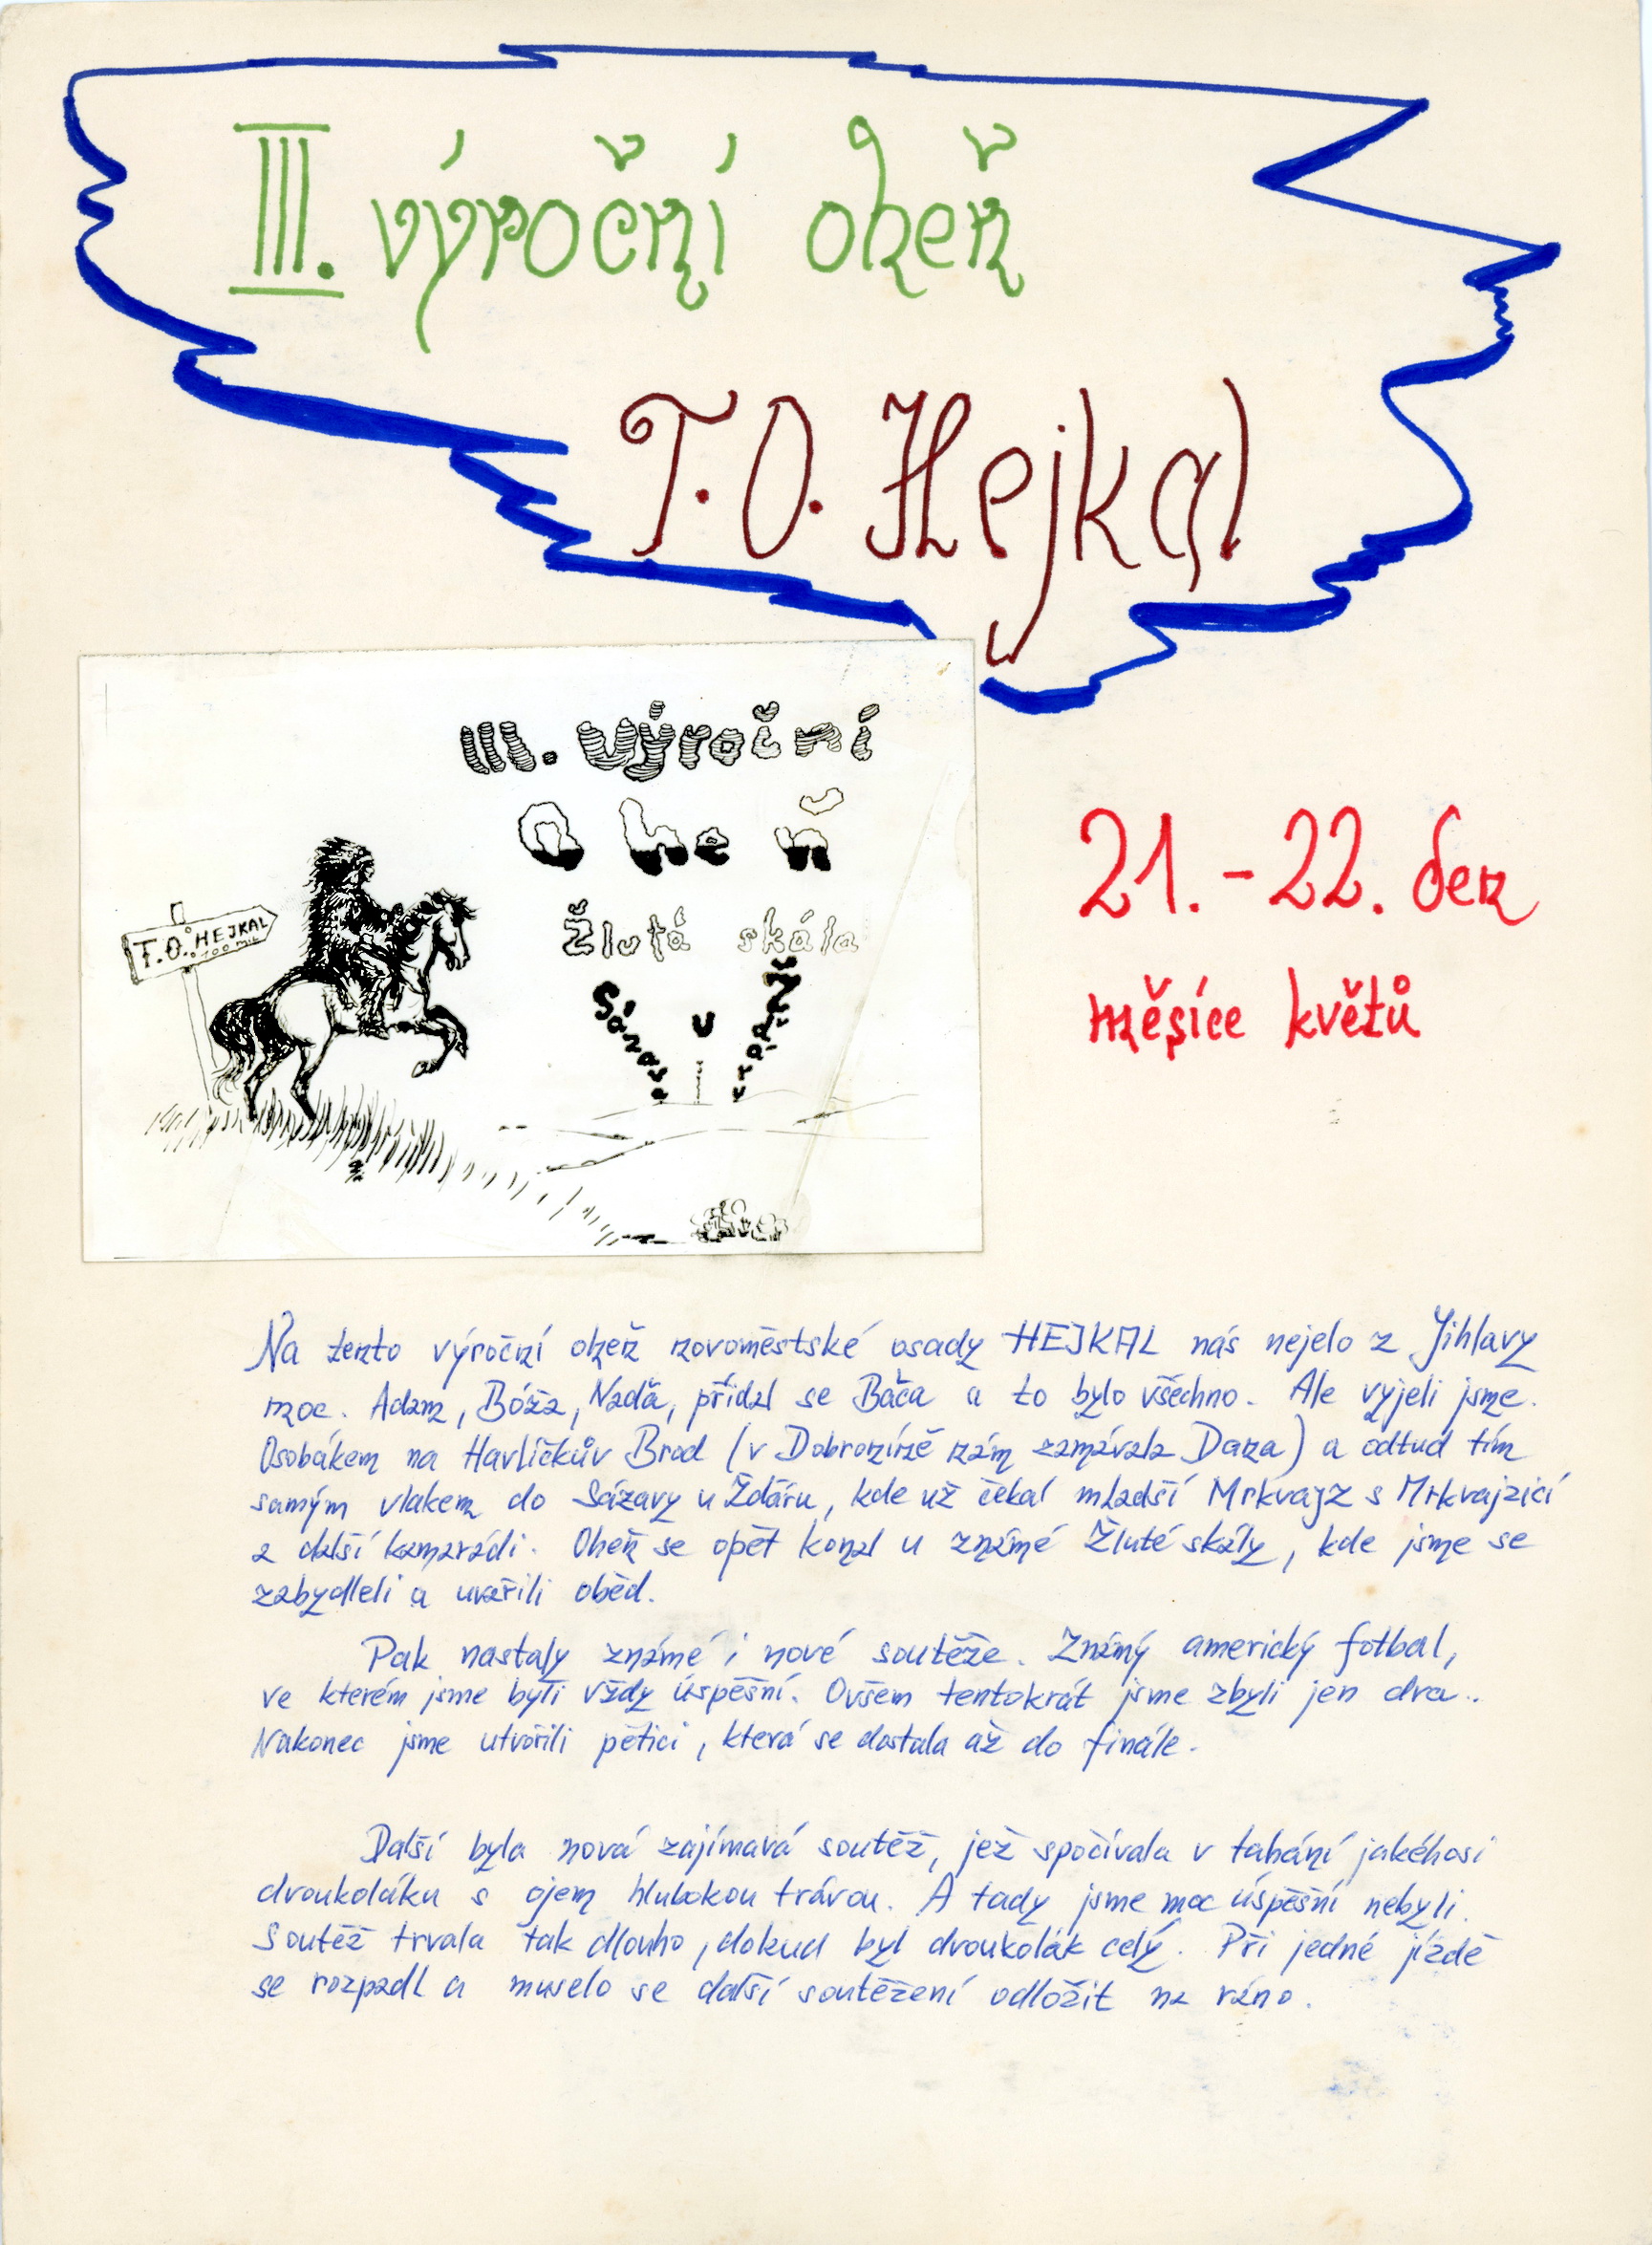 III. výroční oheň
T.O. Hejkal
III. výroční
Oheň
žlutá skála
Sázava u Žďáru
T.O. HEJKAL
100 mil
21.-22. den
měsíce květů
Na tento výroční oheň novoměstské osady HEJKAL nás nejelo z Jihlavy
moc. Adam, Bóža, Naďa, přidal se Báča a to bylo všechno. Ale vyjeli jsme.
Osobákem na Havlíčkův Brod (v Dobroníně nám zamávala Dana) a odtud tím
samým vlakem do Sázavy u Žďáru, kde už čekal mladší Mrkvajz s Mrkvajzicí
a další kamarádi. Oheň se opět konal u známé Žluté skály, kde jsme se
zabydleli a uvařili oběd.
Pak nastaly známé i nové soutěže. Známý americký fotbal,
ve kterém jsme byli vždy úspěšní. Ovšem tentokrát jsme zbyli jen dva..
Nakonec jsme utvořili pětici, která se dostala až do finále.
Další byla nová zajímavá soutěž, jež spočívala v tahání jakéhosi
dvoukoláku s ojem hlubokou trávou. A tady jsme moc úspěšní nebyli.
Soutěž trvala tak dlouho, dokud byl dvoukolák celý. Při jedné jízdě
se rozpadl a muselo se další soutěžení odložit na ráno.